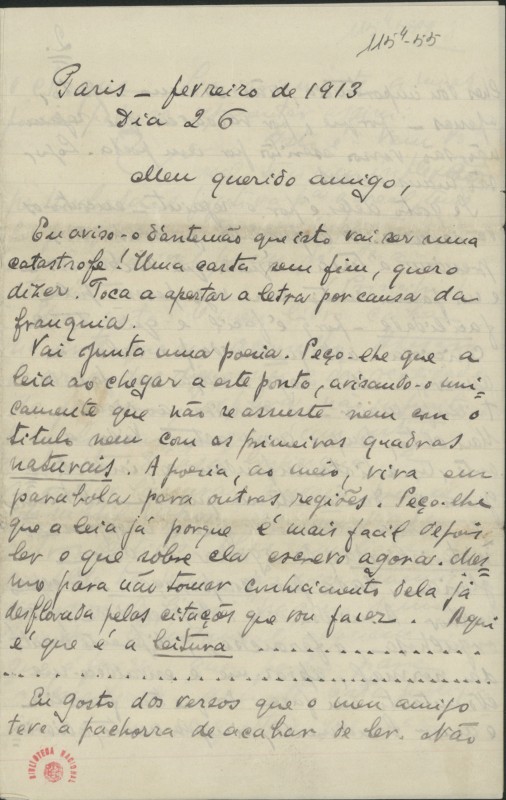 115⁴-55
Paris – fevreiro de 1913
Dia 26
Meu querido amigo,
Eu aviso-o d'antemão que isto vai ser uma
catastrofe! Uma carta sem fim, quero
dizer. Toca a apertar a letra por causa da
franquia.
Vai junta uma poesia. Peço-lhe que a
leia ao chegar a este ponto, avisando-o uni-
camente que não se assuste nem com o
titulo nem com as primeiras quadras
naturais. A poesia, ao meio, vira em
parabola para outras regiões. Peço-lhe
que a leia já porque é mais facil depois
ler o que sobre ela escrevo agora. Mes-
mo para não tomar conhecimento dela já
desflorada pelas citações que vou fazer. Aqui
é que é a leitura . . . . . . . . . . . . . . . . .
. . . . . . . . . . . . . . . . . . . . . . . . . . . . . . . .
Eu gosto dos versos que o meu amigo
teve a pachorra de acabar de ler. Não
BIBLIOTECA NACIONAL